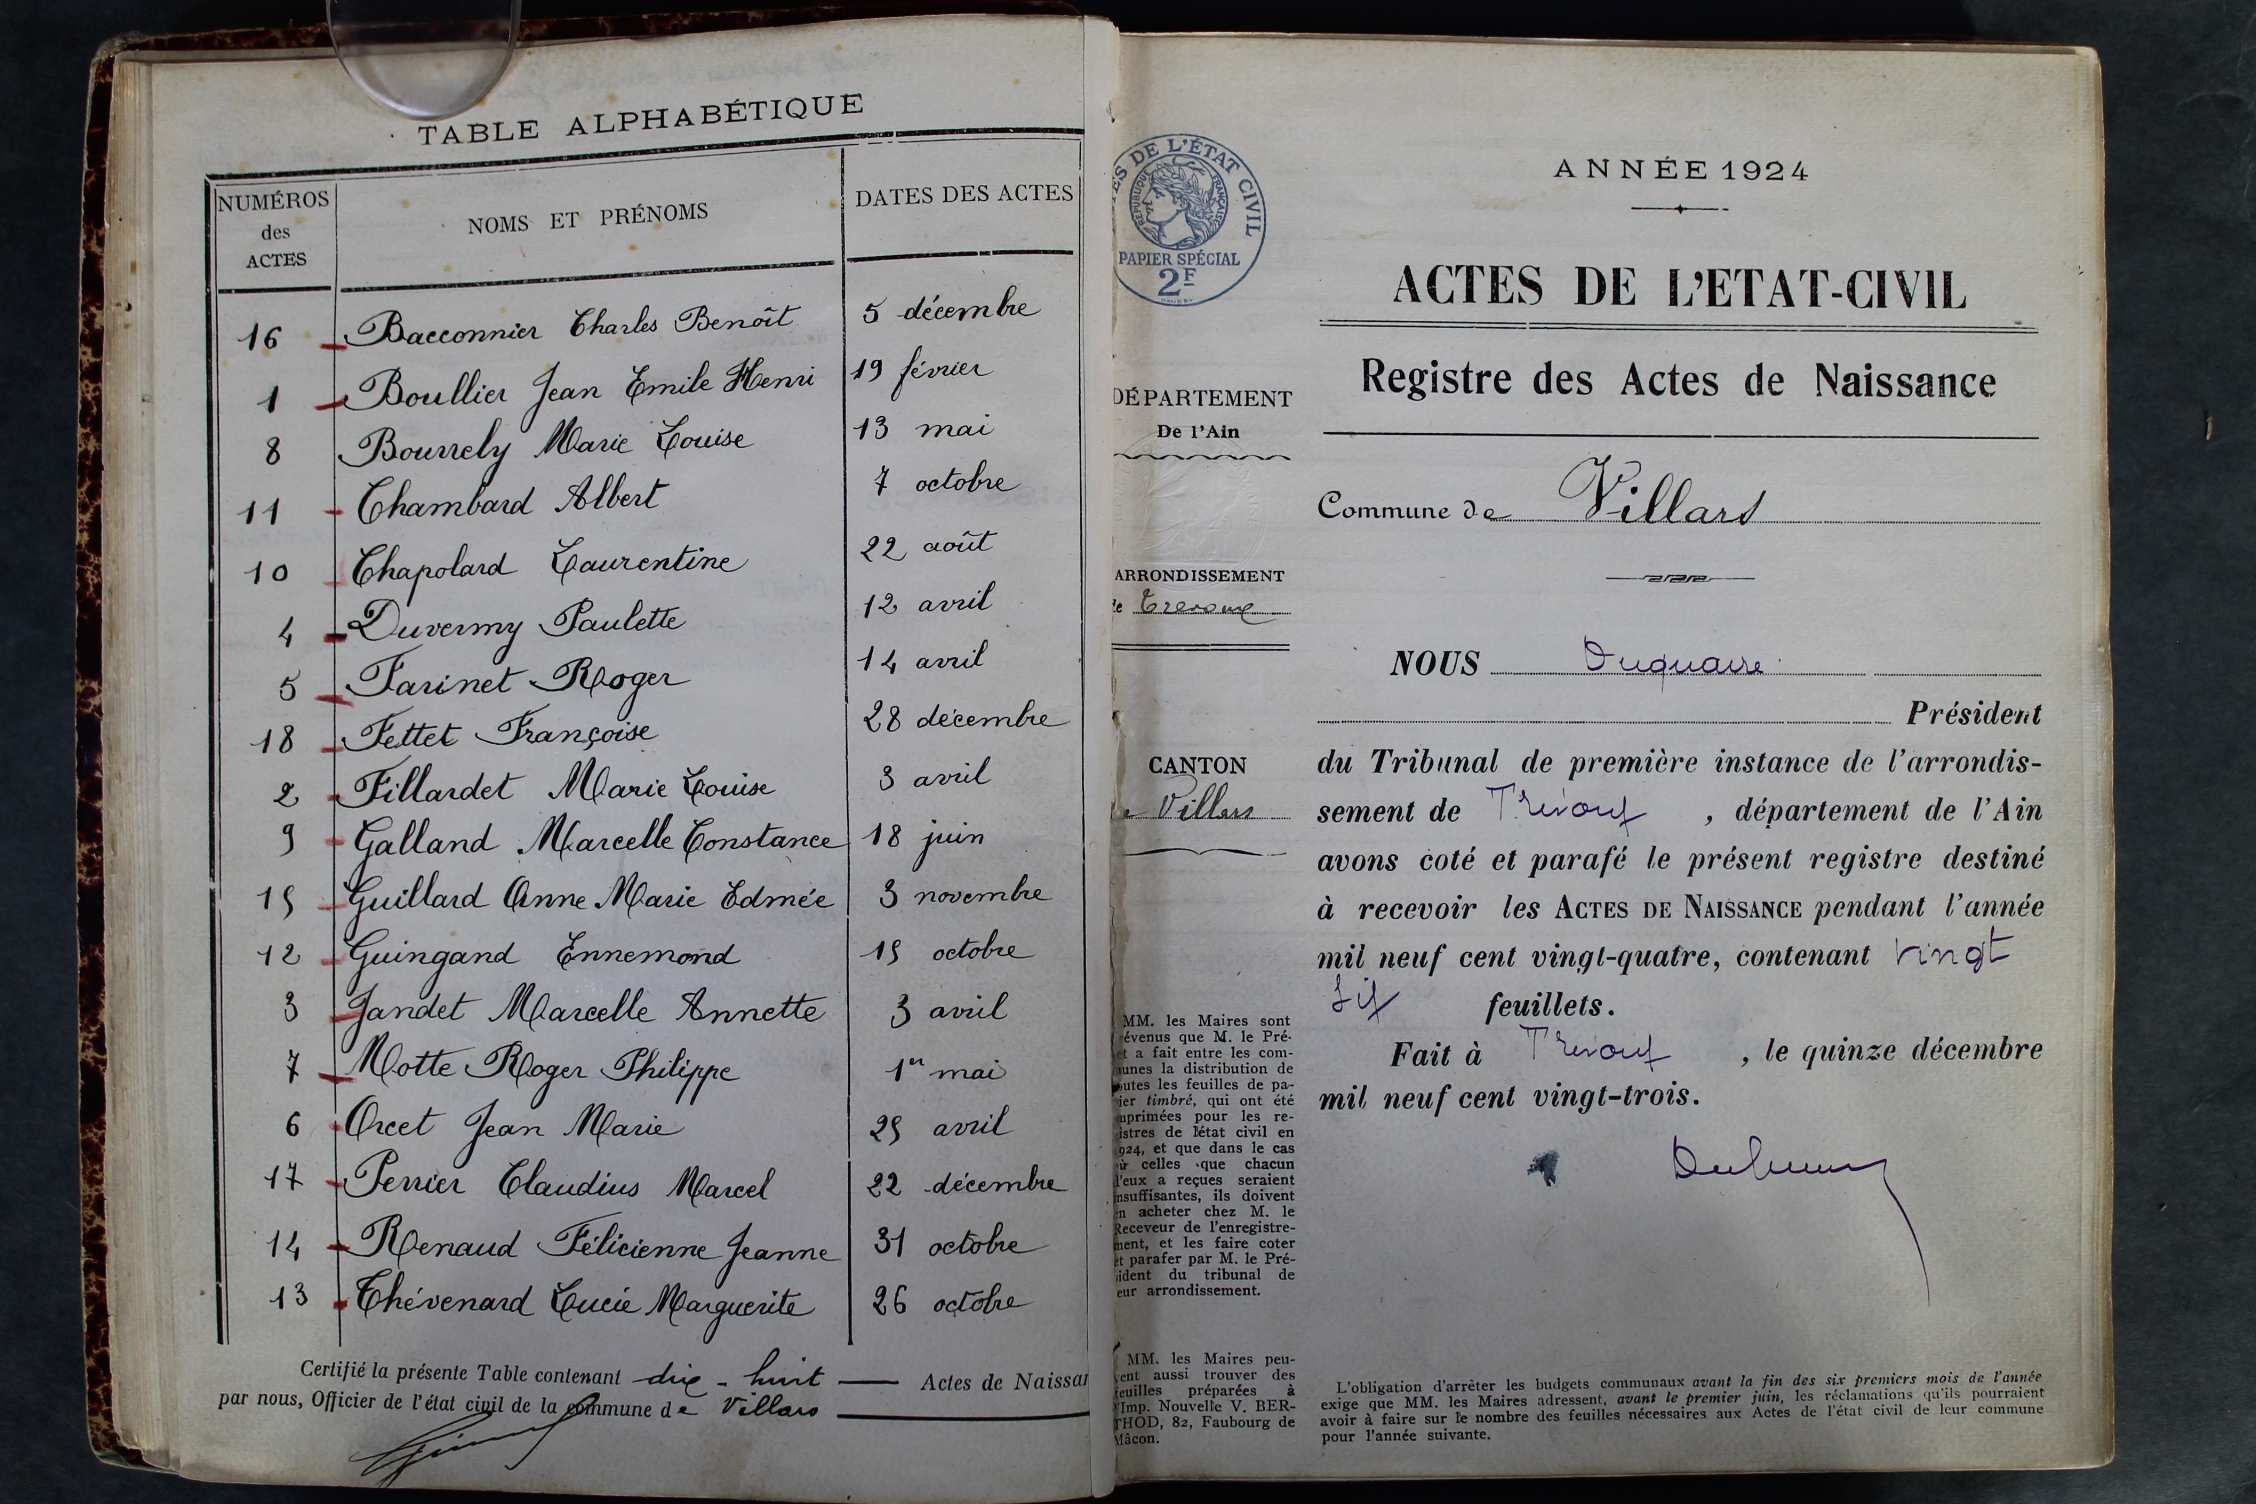 TABLE ALPHABÉTIQUE
NUMÉROS des ACTES
NOMS ET PRÉNOMS
DATES DES ACTES
16 Bacconnier Charles Benoît 5 décembre
1 Boullier Jean Emile Henri 19 février
8 Bourrely Marie Louise 13 mai
11 Chambard Albert 7 octobre
10 Chapolard Laurentine 22 août
4 Duvermy Paulette 12 avril
5 Farinet Roger 14 avril
18 Fettet Françoise 28 décembre
2 Fillardet Marie Louise 3 avril
9 Galland Marcelle Constance 18 juin
15 Guillard Anne Marie Edmée 3 novembre
12 Guingand Ennemond 15 octobre
3 Jandet Marcelle Annette 3 avril
7 Motte Roger Philippe 1er mai
6 Orcet Jean Marie 25 avril
17 Perrier Claudius Marcel 22 décembre
14 Renaud Félicienne Jeanne 31 octobre
13 Thévenard Lucie Marguerite 26 octobre
Certifié la présente Table contenant dix-huit Actes de Naissa
par nous, Officier de l'état civil de la commune de Villars
DE L'ÉTAT CIVIL
RÉPUBLIQUE FRANÇAISE
PAPIER SPÉCIAL
2F
DÉPARTEMENT
De l'Ain
ARRONDISSEMENT
de Trevoux
CANTON
de Villars
MM. les Maires sont
évenus que M. le Pré-
et a fait entre les com-
unes la distribution de
outes les feuilles de pa-
ier timbré, qui ont été
mprimées pour les re-
istres de l'état civil en
924, et que dans le cas
ù celles que chacun
d'eux a reçues seraient
nsuffisantes, ils doivent
en acheter chez M. le
Receveur de l'enregistre-
ment, et les faire coter
et parafer par M. le Pré-
sident du tribunal de
eur arrondissement.
MM. les Maires peu-
vent aussi trouver des
feuilles préparées à
l'Imp. Nouvelle V. BER-
THOD, 82, Faubourg de
Mâcon.
ANNÉE 1924
ACTES DE L'ETAT-CIVIL
Registre des Actes de Naissance
Commune de Villars
NOUS Duquaire
Président
du Tribunal de première instance de l'arrondis-
sement de Trévoux, département de l'Ain
avons coté et parafé le présent registre destiné
à recevoir les ACTES DE NAISSANCE pendant l'année
mil neuf cent vingt-quatre, contenant vingt
six feuillets.
Fait à Trévoux, le quinze décembre
mil neuf cent vingt-trois.
L'obligation d'arrêter les budgets communaux avant la fin des six premiers mois de l'année
exige que MM. les Maires adressent, avant le premier juin, les réclamations qu'ils pourraient
avoir à faire sur le nombre des feuilles nécessaires aux Actes de l'état civil de leur commune
pour l'année suivante.